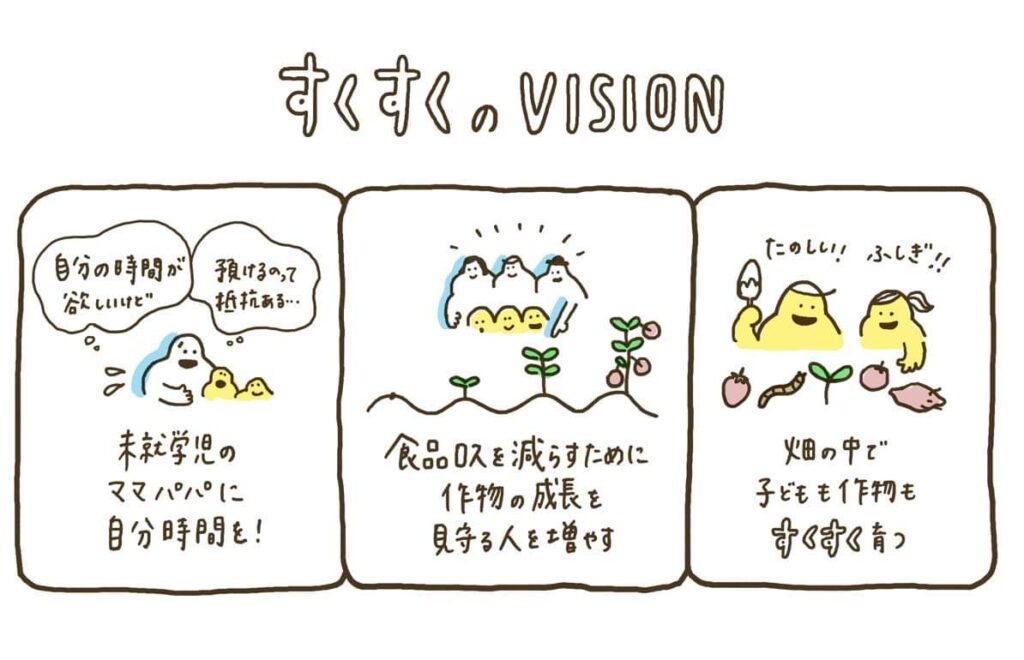 すくすくのVISION
自分の時間が
欲しいけど
預けるのって
抵抗ある…
未就学児の
ママパパに
自分時間を!
食品ロスを減らすために
作物の成長を
見守る人を増やす
たのしい! ふしぎ!!
畑の中で
子どもも作物も
すくすく育つ